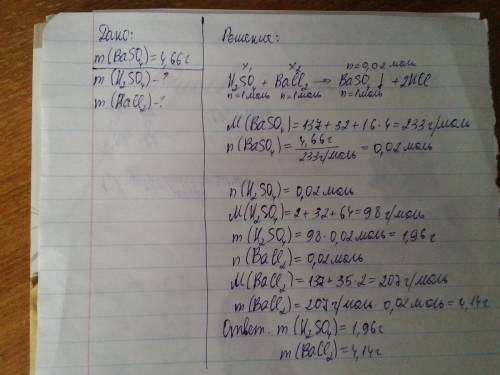 Дано:
m(BaSO₄)=4,66г
m(H₂SO₄)-?
m(BaCl₂)-?
Решение:
x₁ x₂ n=0,02моль
H₂SO₄ + BaCl₂ → BaSO₄↓ + 2HCl
n=1моль n=1моль n=1моль
M(BaSO₄)=137+32+16·4=233г/моль
n(BaSO₄)=4,66г/233г/моль=0,02моль
n(H₂SO₄)=0,02моль
M(H₂SO₄)=2+32+64=98г/моль
m(H₂SO₄)=98·0,02моль=1,96г
n(BaCl₂)=0,02моль
M(BaCl₂)=137+35·2=207г/моль
m(BaCl₂)=207г/моль·0,02моль=4,14г
Ответ. m(H₂SO₄)=1,96г
m(BaCl₂)=4,14г